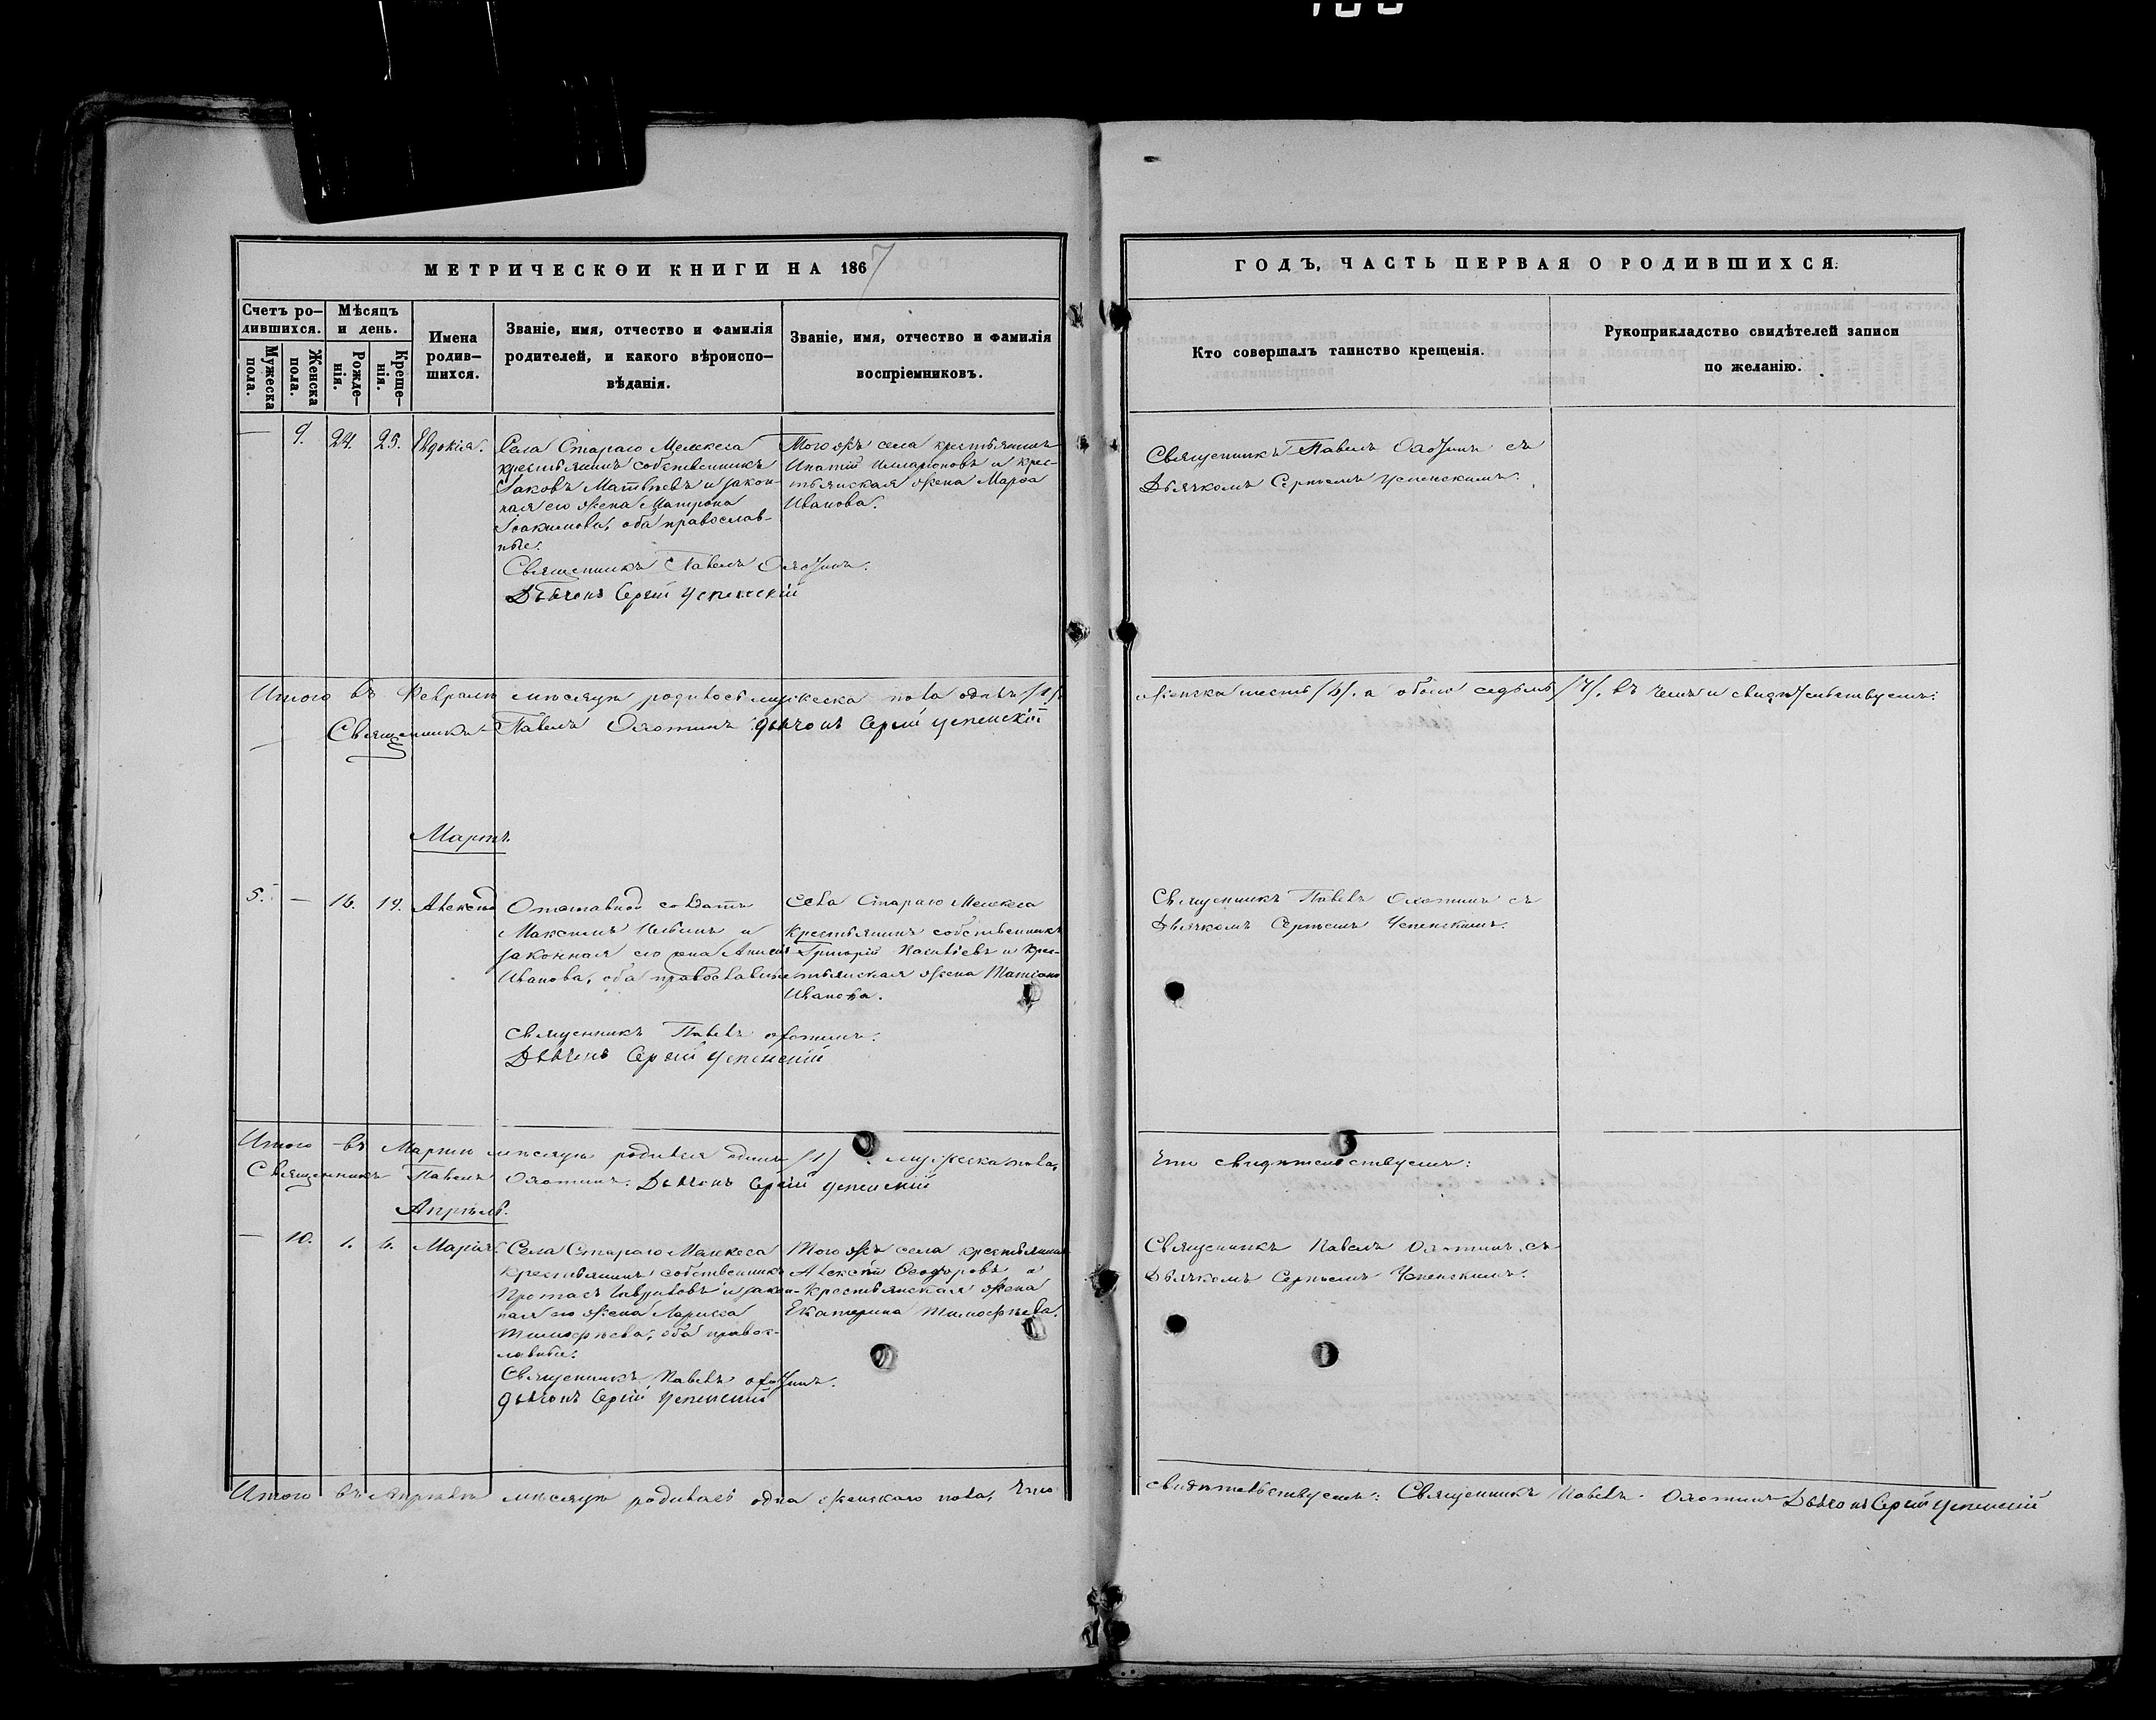 МЕТРИЧЕСКОЙ КНИГИ НА 1867
Счетъ ро-
дившихся.
Мѣсяцъ
и день.
Мужеска
пола.
Женска
пола.
Рожде-
нія.
Креще-
нія.
Имена
родив-
шихся.
Званіе, имя, отчество и фамилія
родителей, и какого вѣроиспо-
вѣданія.
Званіе, имя, отчество и фамилія
воспріемниковъ.
— 9. 24. 25. Евдокія.
Села Стараго Мелекеса
крестьянинъ собственникъ
Іаковъ Матвѣевъ и закон-
ная его жена Матрона
Іоакимова, оба православ-
ные.
Священникъ Павелъ Охотинъ.
Дьячокъ Сергій Успенскій
Того жъ села крестьянинъ
Ипатій Илларіоновъ и крес-
тьянская жена Марѳа
Иванова.
Итого въ Февралѣ мѣсяцѣ родилось мужеска пола одинъ /1/.
Священникъ Павелъ Охотинъ дьячокъ Сергій Успенскій
Мартъ
5. — 16. 19.
Отставной солдатъ
Максимъ и
законная его жена
Иванова, оба православные
Священникъ Павелъ Охотинъ.
Дьячокъ Сергій Успенскій
Села Стараго Мелекеса
крестьянинъ собственникъ
Григорій и крес-
тьянская жена Татіана
Иванова.
Итого въ Мартѣ мѣсяцѣ родился одинъ /1/ мужеска пола,
Священникъ Павелъ Охотинъ. Дьячокъ Сергій Успенскій
Апрѣль.
— 10. 1. 6. Марія.
Села Стараго Мелекеса
крестьянинъ собственникъ
Протасъ Гавриловъ и закон-
ная его жена Лариса
Тимоѳеева, оба правос-
лавные.
Священникъ Павелъ Охотинъ.
дьячокъ Сергій Успенскій
Того жъ села крестьянинъ
Алексѣй Ѳеодоровъ и
крестьянская жена
Екатерина Тимофѣева.
Итого въ Апрѣлѣ мѣсяцѣ родилась одна женскаго пола, что
ГОДЪ, ЧАСТЬ ПЕРВАЯ О РОДИВШИХСЯ.
Кто совершалъ таинство крещенія.
Рукоприкладство свидѣтелей записи
по желанію.
Священникъ Павелъ Охотинъ съ
Дьячкомъ Сергѣемъ Успенскимъ.
женска шесть /6/. а обоего седьмь /7/. въ чемъ и свидѣтельствуемъ:
Священникъ Павелъ Охотинъ съ
Дьячкомъ Сергѣемъ Успенскимъ.
Что свидѣтельствуемъ:
Священникъ Павелъ Охотинъ съ
Дьячкомъ Сергѣемъ Успенскимъ.
свидѣтельствуемъ: Священникъ Павелъ Охотинъ Дьячокъ Сергій Успенскій